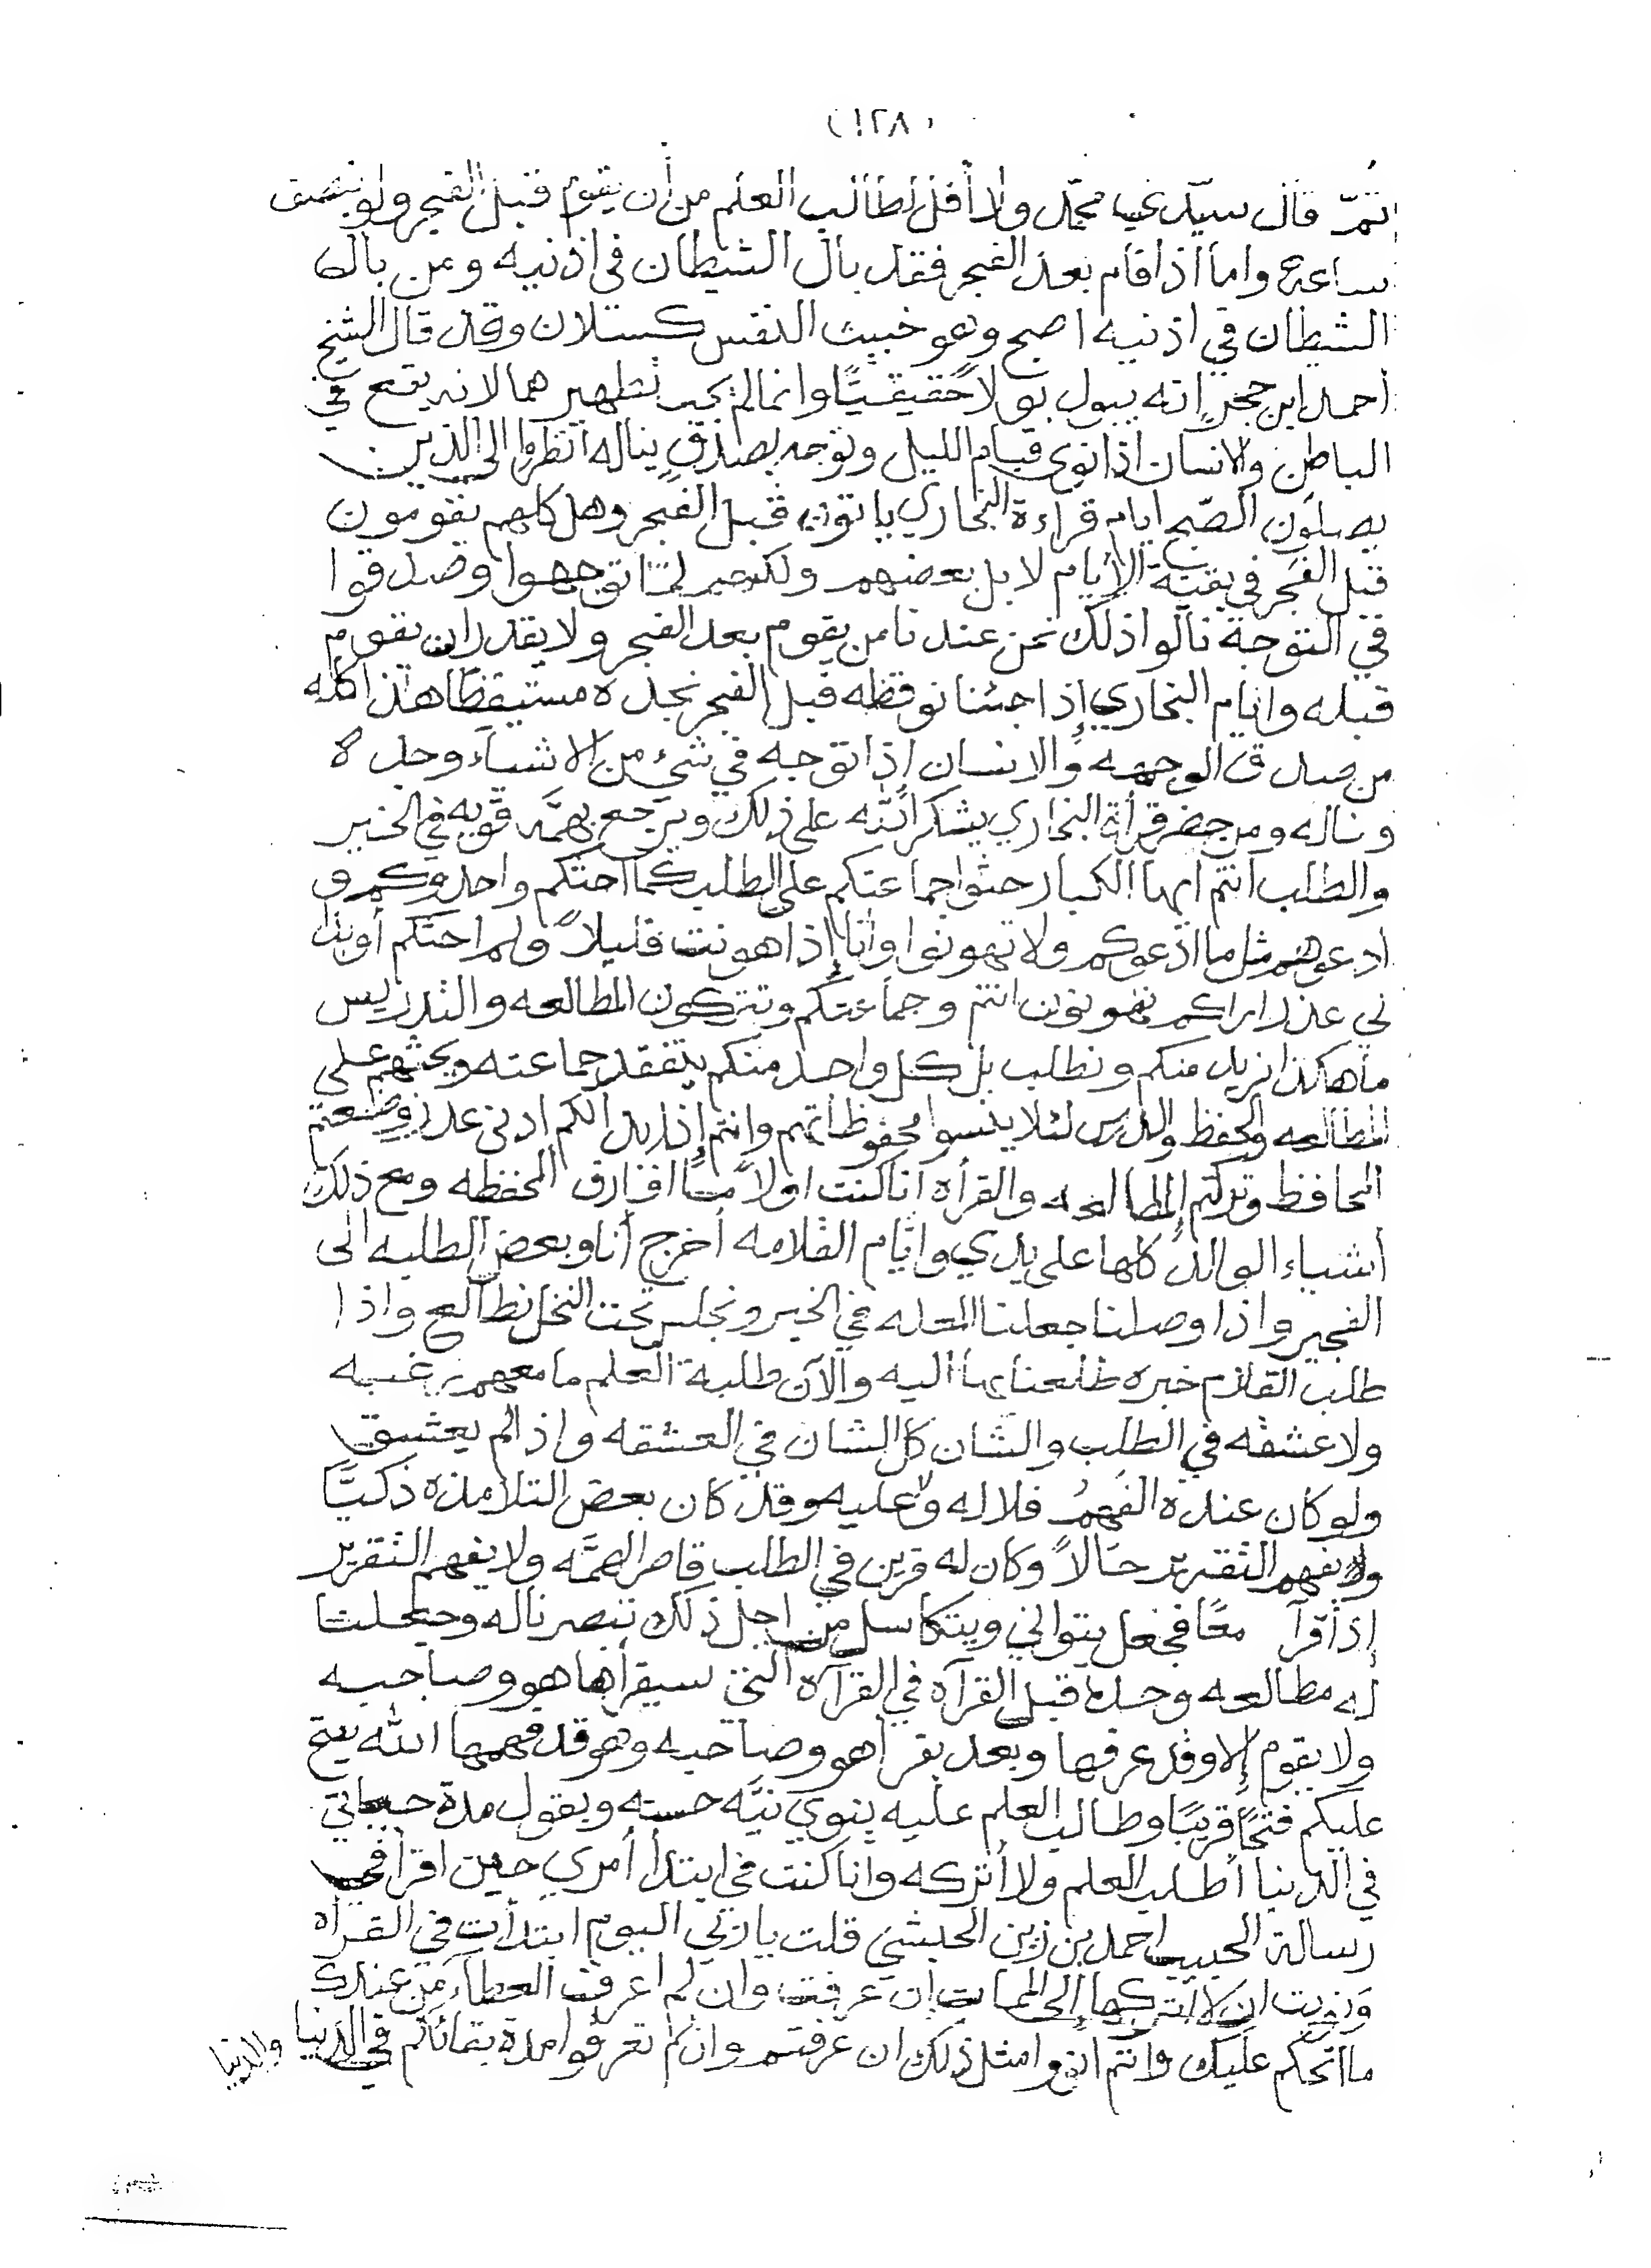 (١٢٨)
ثمّ قال سيّدي محمّد ولا أقل لطالب العلم من أن يقوم قبل الفجر ولو بنصف
ساعة واما اذا قام بعد الفجر فقد بال الشيطان في اذنيه ومن بال
الشيطان في اذنيه اصبح وهو خبيث النفس كسلان وقد قال الشيخ
أحمد ابن حجرٍ انه يبول بولاً حقيقيًّا وانما لم يجب تطهيرهما لانه يقع في
الباطن والانسان اذا نوى قيام الليل وتوجه بصدقٍ يناله انظروا الى الذين
يصلون الصّبح ايام قراءة البخاري ياتون قبل الفجر وهل كلهم يقومون
قبل الفجر في بقيّة الأيام لا بل بعضهم ولكنهم لمّا توجهوا وصدقوا
في التوجة نالوا ذلك نحن عندنا من يقوم بعد الفجر ولا يقدر ان يقوم
قبله وايام البخاري إذا جئنا نوقظه قبل الفجر نجده مستيقظًا هذا كله
من صدق الوجهه والانسان إذا توجه في شيء من الاشياء وجده
وناله ومن حضر قرأة البخاري يشكر الله على ذلك ويرجع بهمَّه قويه في الخير
والطلب انتم ايها الكبار حثوا جماعتكم على الطلب كما احثكم واحدوكم و
ادعوهم مثل ما ادعوكم ولا تهونوا وانا إذا هونت قليلاً ولم احثكم أو بدا
لي عذر اراكم تهونون انتم وجماعتكم وتتركون المطالعه والتدريس
ما هكذا نريد منكم ونطلب بل كل واحد منكم يتفقد جماعته ويحثهم على
المطالعه والحفظ والدرس لئلا ينسوا محفوظاتهم وانتم إذا بدا لكم ادنى عذر وضعتم
المحافظ وتركتم المطالعه والقرأه انا كنت اولاً ما افارق المحفظه ومع ذلك
أشياء الوالد كلها على يدي وايام القلامه أخرج أنا وبعض الطلبه الى
الفجير واذا وصلنا جعلنا المعله في الخير ونجلس تحت النخل نطالع واذا
طلب القلام خبره طلعنا بها اليه والآن طلبة العلم ما معهم رغبه
ولا عشقه في الطلب والشان كل الشان في العشقه واذا لم يعشق
ولو كان عنده الفهمُ فلا له ولا عليه وقد كان بعض التلامذه ذكيًّا
ولا يفهم التقرير حالاً وكان له قرين في الطلب قاصر الهمَّه ولا يفهم التقرير
إذا قرآ معًا فجعل يتوانى ويتكاسل من اجل ذلك تبصرنا له وجعلنا
له مطالعه وحده قبل القرآه في القرآه التي سيقرأها هو وصاحبه
ولا يقوم إلا وقد عرفها وبعد يقرأ هو وصاحبه وهو قد فهمها الله يفتح
عليكم فتحًا قريبًا وطالب العلم عليه ينوي نيَّه حسنه ويقول مدة حياتي
في الدنيا أطلب العلم ولا أتركه وانا كنت في ابتدأ أمري حين اقرأ في
رسالة الحبيب احمد بن زين الحبشي قلت يا ربي اليوم ابتدأت في القرأه
ونويت ان لا اتركها إلى الممات ان عرفت وان لم اعرف العطاء من عندك
ما اتحكم عليك وانتم انووا مثل ذلك ان عرفتم وان لم تعرفوا مدة بقائكم في الدنيا
والدنيا